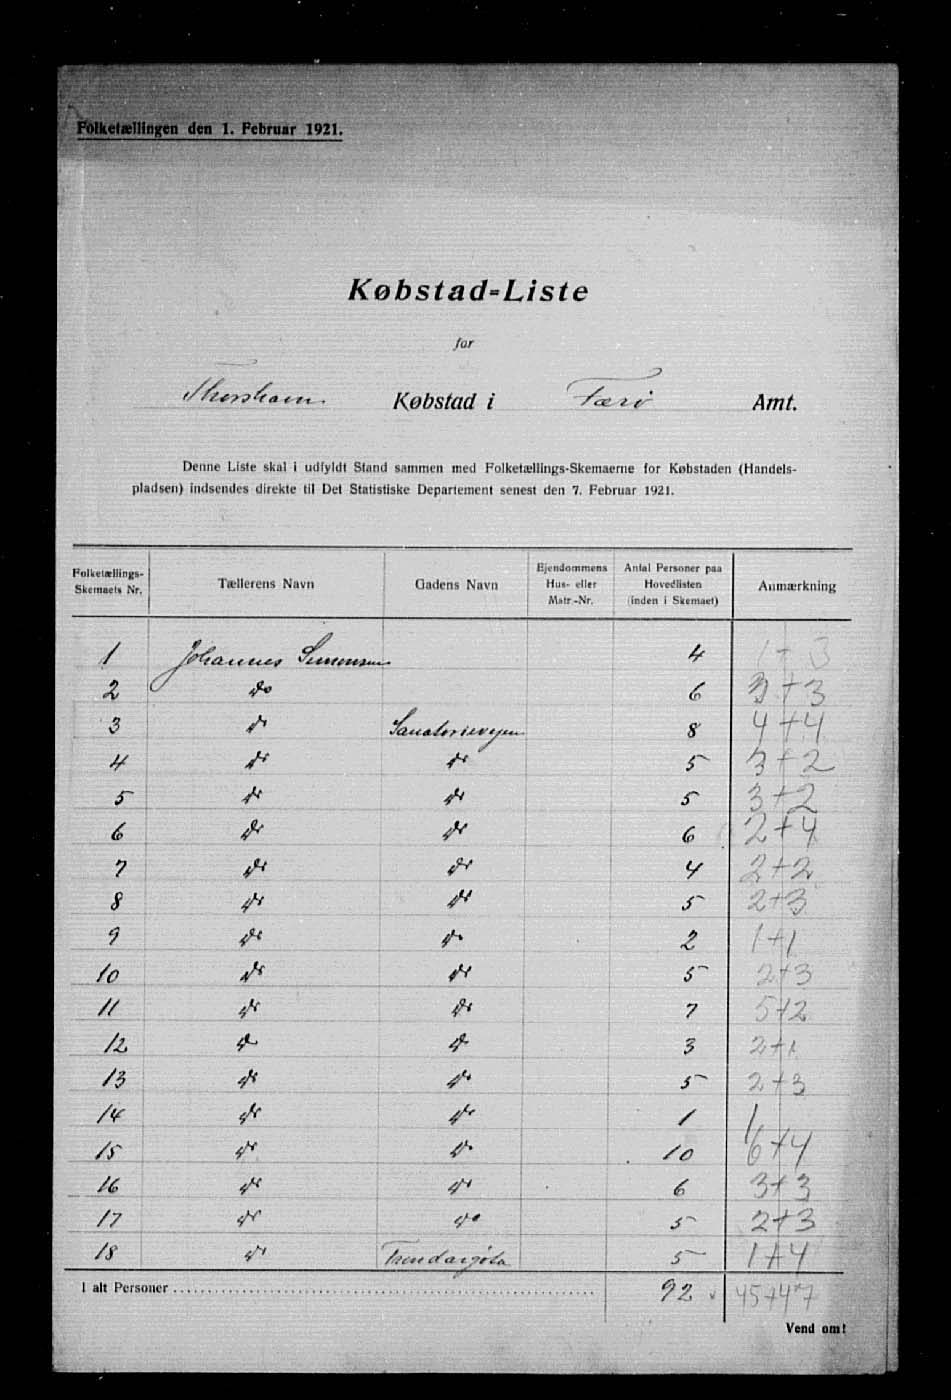 Folketællingen den 1. Februar 1921.
Købstad=Liste
for
Thorshavn Købstad i Færö Amt.
Denne Liste skal i udfyldt Stand sammen med Folketællings-Skemaerne for Købstaden (Handels-
pladsen) indsendes direkte til Det Statistiske Departement senest den 7. Februar 1921.
Folketællings-Skemaets Nr. Tællerens Navn Gadens Navn Ejendommens Hus- eller Matr.-Nr. Antal Personer paa Hovedlisten (inden i Skemaet) Anmærkning
1 Johannes Simonsen 4 1+3
2 do 6 3+3
3 do Sanatorievejen 8 4+4
4 do do 5 3+2
5 do do 5 3+2
6 do do 6 2+4
7 do do 4 2+2
8 do do 5 2+3
9 do do 2 1+1
10 do do 5 2+3
11 do do 7 5+2
12 do do 3 2+1
13 do do 5 2+3
14 do do 1 1
15 do do 10 6+4
16 do do 6 3+3
17 do do 5 2+3
18 do 5 1+4
I alt Personer 92 45+47
Vend om!